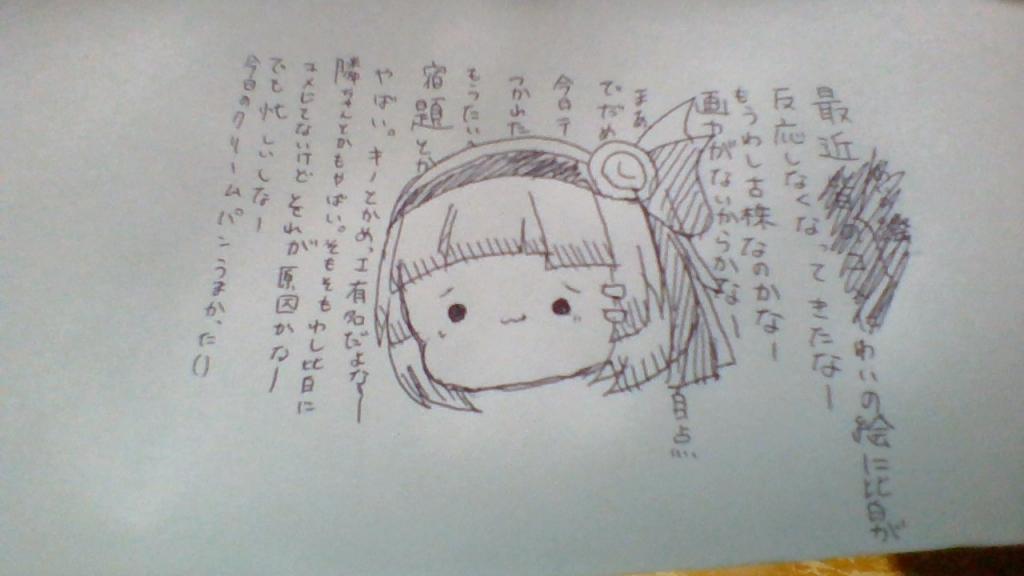 最近 わいの絵に皆が
反応しなくなってきたなー
もうわし古株なのかなー
画力がないからかなー
まあ 自点
でだめ
今日テ
つかれた
もうたい
宿題とか
やばい。キノとかめっエ有名だよなー
隣さんとかもやばい。そもそもわし皆に
コメしてないけど それが原因かなー
でも忙しいしなー
今日のクリームパンうまかった()